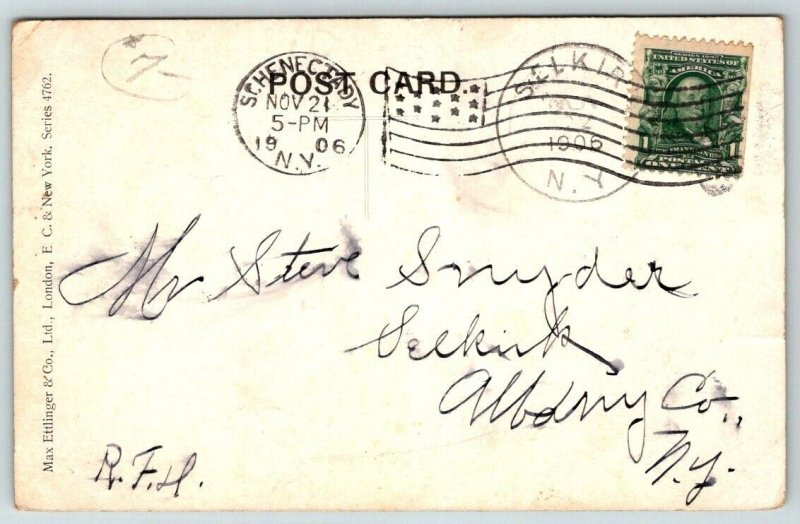 7-
POST CARD.
SCHENECTADY
NOV 21
5-PM
1906
N.Y.
SELKIRK
NOV
1906
N.Y.
SERIES 1902
UNITED STATES OF
AMERICA
FRANKLIN
POSTAGE
1 ONE CENT 1
Mr Steve Snyder
Selkirk
Albany Co.,
N.Y.
R.F.H.
Max Ettlinger & Co., Ltd., London, E C. & New York. Series 4762.